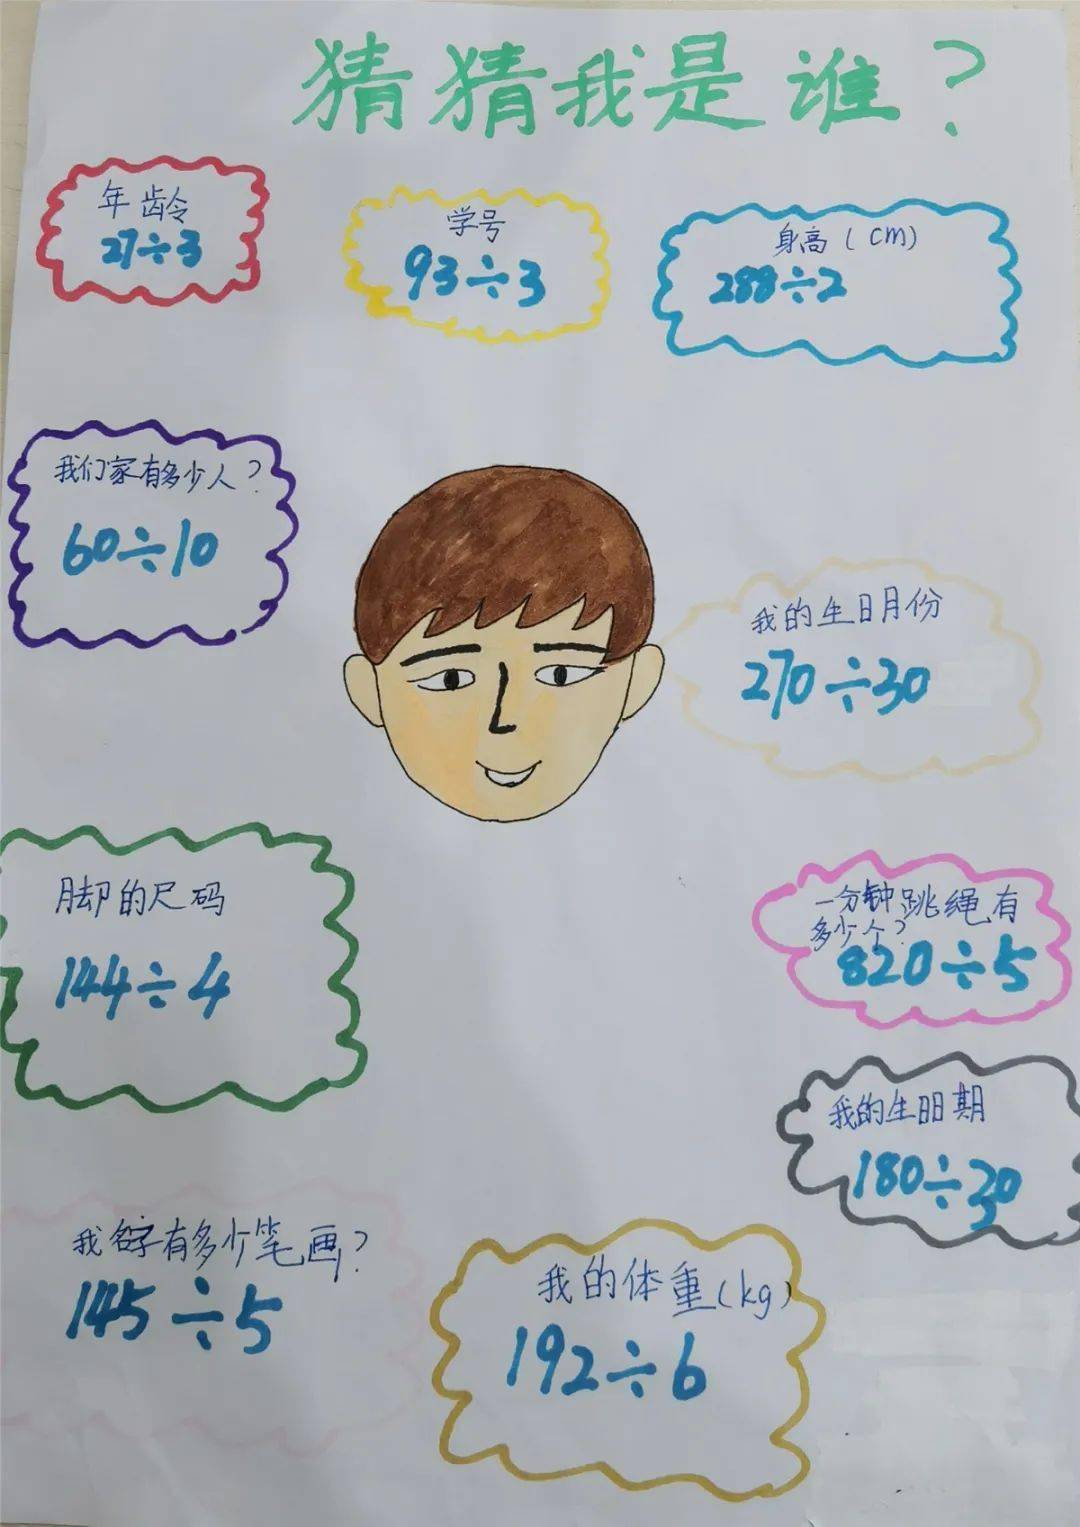 猜猜我是谁？
年龄
27÷3
学号
93÷3
身高(cm)
288÷2
我们家有多少人？
60÷10
我的生日月份
270÷30
脚的尺码
144÷4
一分钟跳绳有
多少个？
820÷5
我的生日日期
180÷30
我名字有多少笔画？
145÷5
我的体重(kg)
192÷6